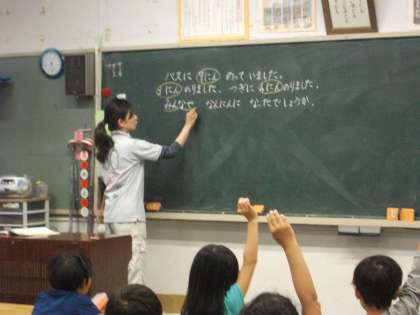 バスに 9にん のっていました。
にん のりました。つぎに 4にん のりました。
みんなで なんにんに なったでしょうか。